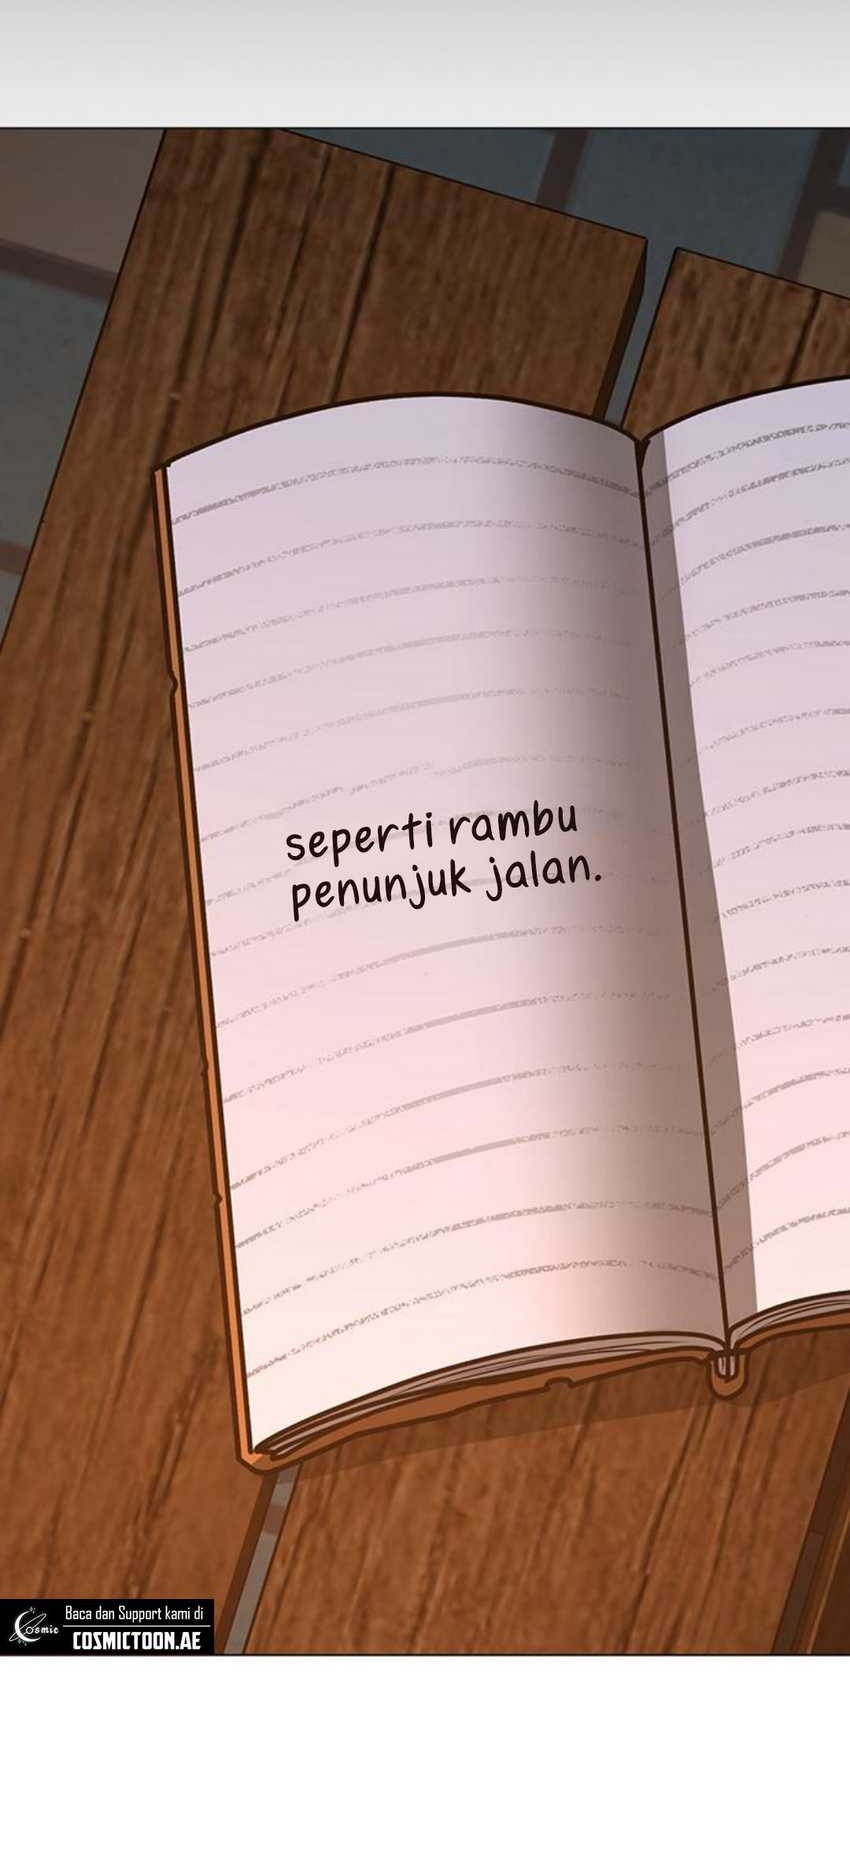 seperti rambu
penunjuk jalan.
Cosmic
Baca dan Support kami di
COSMICTOON.AE